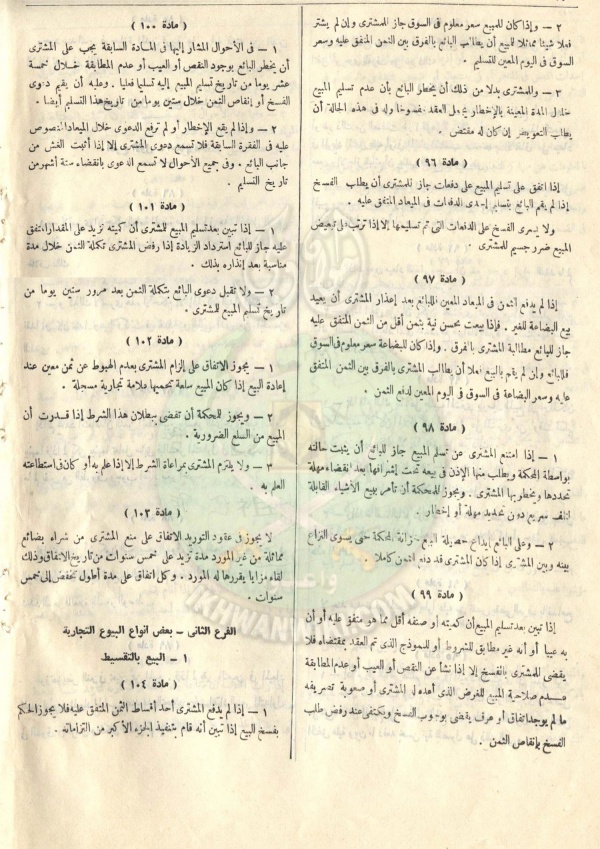 ٢ – وإذا كان للمبيع سعر معلوم فى السوق جاز للمشترى وإن لم يشتر
فعلا شيئا مماثلا للمبيع أن يطالب البائع بالفرق بين الثمن المتفق عليه وسعر
السوق فى اليوم المعين للتسليم .
٣ – وللمشترى بدلا من ذلك أن يخطر البائع بأن عدم تسليم المبيع
خلال المدة المعينة بالإخطار يجعل العقد مفسوخا وله فى هذه الحالة أن
يطالب التعويض إن كان له مقتض .
( مادة ٩٦ )
إذا اتفق على تسليم المبيع على دفعات جاز للمشترى أن يطالب الفسخ
إذا لم يقم البائع بتسليم إحدى الدفعات فى الميعاد المتفق عليه .
ولا يسرى الفسخ على الدفعات التى تم تسليمها إلا إذا ترتب على تبعيض
المبيع ضرر جسيم للمشترى .
( مادة ٩٧ )
إذا لم يدفع الثمن فى الميعاد المعين فللبائع بعد إعذار المشترى أن يعيد
بيع البضاعة للغير . فإذا بيعت بحسن نية بثمن أقل من الثمن المتفق عليه
جاز للبائع مطالبة المشترى بالفرق . وإذا كان للبضاعة سعر معلوم فى السوق
فللبائع وإن لم يقم بالبيع فعلا أن يطالب المشترى بالفرق بين الثمن المتفق
عليه وسعر البضاعة فى السوق فى اليوم المعين لدفع الثمن .
( مادة ٩٨ )
١ – إذا امتنع المشترى عن تسلم المبيع جاز للبائع أن يثبت حالته
بواسطة المحكمة ويطلب منها الإذن فى بيعه تحت إشرافها بعد انقضاء مهلة
تحددها ويخطر بها المشترى . ويجوز للمحكمة أن تأمر ببيع الأشياء القابلة
للتلف السريع دون تحديد مهلة أو إخطار .
٢ – وعلى البائع إيداع حصيلة البيع خزانة المحكمة حتى يسوى النزاع
بينه وبين المشترى إذا كان المشترى قد دفع الثمن كاملا .
( مادة ٩٩ )
إذا تبين بعد تسليم المبيع أن كميته أو صنفه أقل مما هو متفق عليه أو أن
به عيبا أو أنه غير مطابق للشروط أو للنموذج الذى تم العقد بمقتضاه فلا
يقضى للمشترى بالفسخ إلا إذا نشأ عن النقص أو العيب أو عدم المطابقة
عدم صلاحية المبيع للغرض الذى أعده له المشترى أو صعوبة تصريفه
ما لم يوجد اتفاق أو عرف يقضى بوجوب الفسخ ويكتفى عند رفض طلب
الفسخ بإنقاص الثمن .
( مادة ١٠٠ )
١ – فى الأحوال المشار إليها فى المادة السابقة يجب على المشترى
أن يخطر البائع بوجود النقص أو العيب أو عدم المطابقة خلال خمسة
عشر يوما من تاريخ تسليم المبيع إليه تسليما فعليا . وعليه أن يقيم دعوى
الفسخ أو إنقاص الثمن خلال ستين يوما من تاريخ هذا التسليم أيضا .
٢ – وإذا لم يقع الإخطار أو لم ترفع الدعوى خلال الميعاد المنصوص
عليه فى الفقرة السابقة فلا تسمع دعوى المشترى إلا إذا أثبت الغش من
جانب البائع . وفى جميع الأحوال لا تسمع الدعوى بانقضاء ستة أشهر من
تاريخ التسليم .
( مادة ١٠١ )
١ – إذا تبين بعد تسليم المبيع للمشترى أن كميته تزيد على المقدار المتفق
عليه جاز للبائع استرداد الزيادة إذا رفض المشترى تكملة الثمن خلال مدة
مناسبة بعد إنذاره بذلك .
٢ – ولا تقبل دعوى البائع بتكملة الثمن بعد مرور ستين يوما من
تاريخ تسليم المبيع للمشترى .
( مادة ١٠٢ )
١ – يجوز الاتفاق على إلزام المشترى بعدم الهبوط عن ثمن معين عند
إعادة البيع إذا كان المبيع سلعة تحميها علامة تجارية مسجلة .
٢ – ويجوز للمحكمة أن تقضى ببطلان هذا الشرط إذا قدرت أن
المبيع من السلع الضرورية .
٣ – ولا يلتزم المشترى بمراعاة الشرط إلا إذا علم به أو كان فى استطاعته
العلم به .
( مادة ١٠٣ )
لا يجوز فى عقود التوريد الاتفاق على منع المشترى من شراء بضائع
مماثلة من غير المورد مدة تزيد على خمس سنوات من تاريخ الاتفاق وذلك
لقاء مزايا يقررها له المورد . وكل اتفاق على مدة أطول تخفض إلى خمس
سنوات .
الفرع الثانى – بعض انواع البيوع التجارية
١ – البيع بالتقسيط
( مادة ١٠٤ )
١ – إذا لم يدفع المشترى أحد أقساط الثمن المتفق عليه فلا يجوز الحكم
بفسخ البيع إذا تبين أنه قام بتنفيذ الجزء الأكبر من التزاماته .